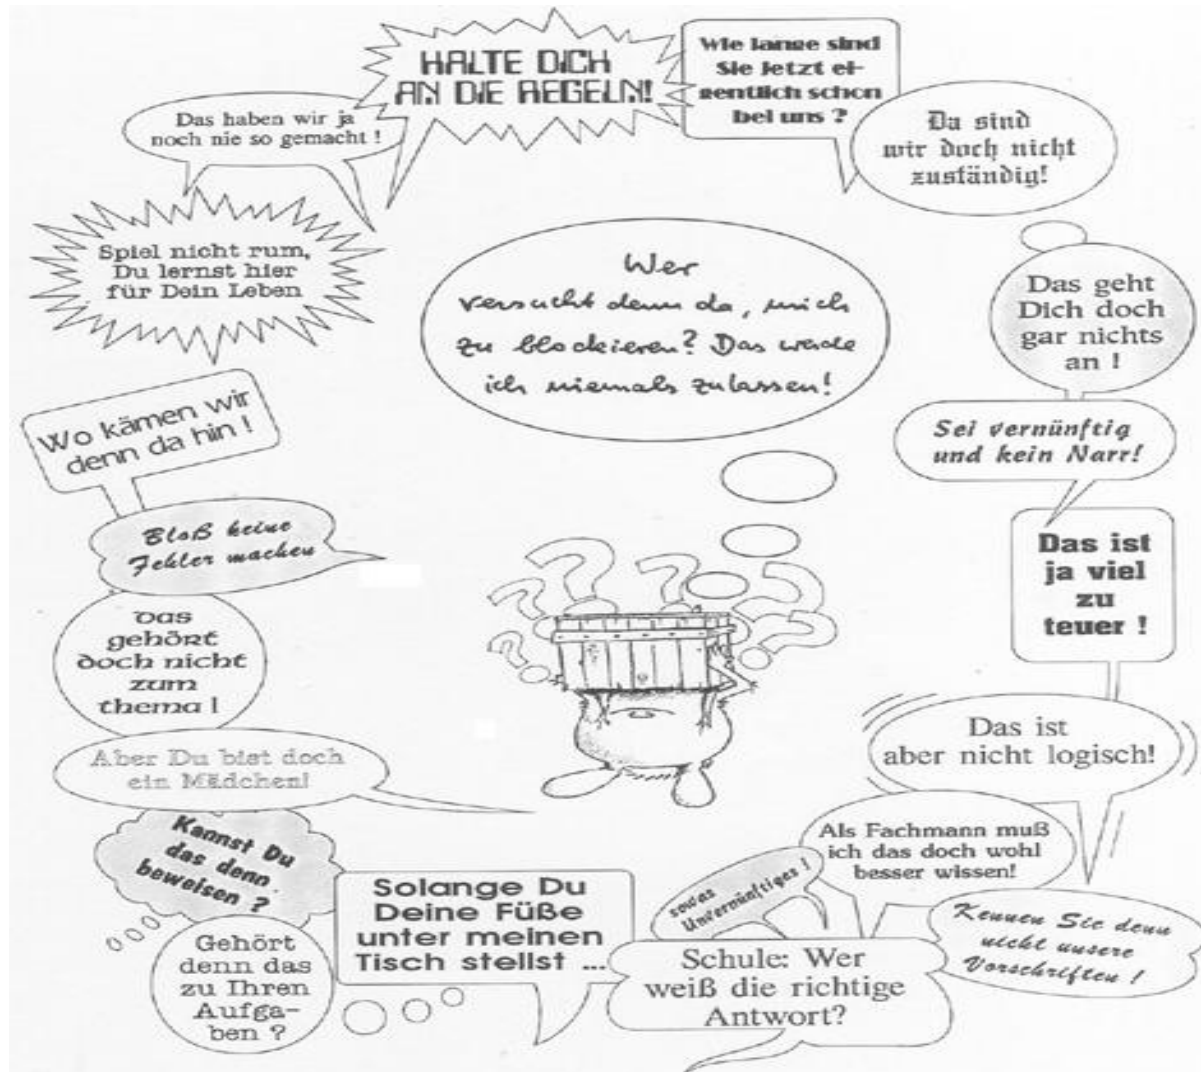 HALTE DICH
AN DIE REGELN!
Wie lange sind
Sie jetzt ei-
gentlich schon
bei uns ?
Das haben wir ja
noch nie so gemacht !
Da sind
wir doch nicht
zuständig!
Spiel nicht rum,
Du lernst hier
für Dein Leben
Wer
versucht denn da, mich
zu blockieren? Das werde
ich niemals zulassen!
Das geht
Dich doch
gar nichts
an !
Wo kämen wir
denn da hin !
Sei vernünftig
und kein Narr!
Bloß keine
Fehler machen
Das ist
ja viel
zu
teuer !
das
gehört
doch nicht
zum
thema !
Das ist
aber nicht logisch!
Aber Du bist doch
ein Mädchen!
Kannst Du
das denn
beweisen ?
Als Fachmann muß
ich das doch wohl
besser wissen!
Solange Du
Deine Füße
unter meinen
Tisch stellst ...
sowas
Unvernünftiges !
Kennen Sie denn
nicht unsere
Vorschriften !
Gehört
denn das
zu Ihren
Aufga-
ben ?
Schule: Wer
weiß die richtige
Antwort?